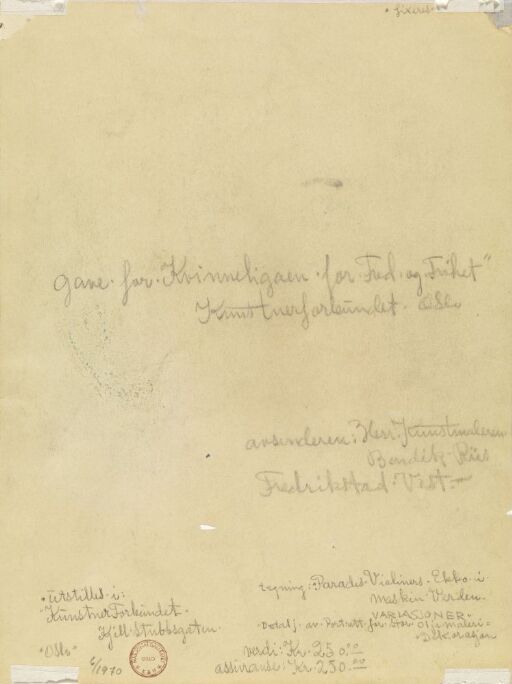 • fixeres
gave for "Kvinneligaen for Fred og Frihet"
Kunstnerforbundet. Oslo
avsenderen: Herr: Kunstmaleren
Bendik Riis
Fredrikstad Vest.
• utstilles i:
Kunstner Forbundet.
Kjell Stubbsgaten.
"Oslo"
6/1970
OSLO
tegning: Parades Violiners. Ekko i
Maskin Verden.
VARIASJONER.
Detalj av Portrett for Stor Olje maleri
Dekorasjon
verdi: Kr. 250.00
assuranse: Kr. 250.00